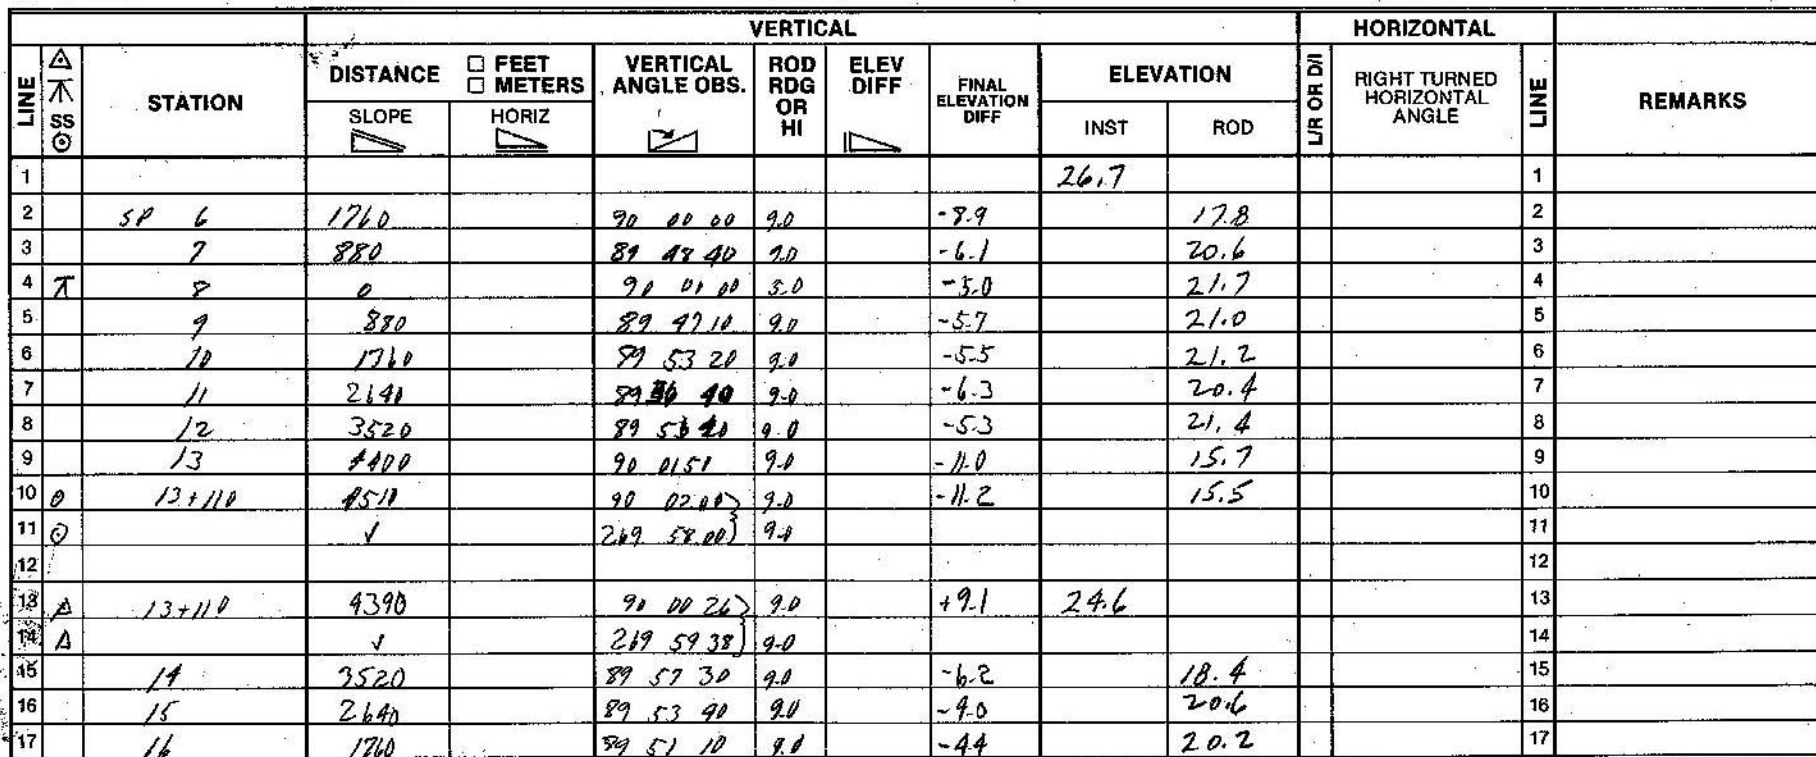 VERTICAL HORIZONTAL
LINE SS STATION DISTANCE □ FEET □ METERS SLOPE HORIZ VERTICAL ANGLE OBS. ROD RDG OR HI ELEV DIFF FINAL ELEVATION DIFF ELEVATION INST ROD L/R OR D/I RIGHT TURNED HORIZONTAL ANGLE LINE REMARKS
1 26.7 1
2 SP 6 1760 90 00 00 9.0 -8.9 17.8 2
3 7 880 89 48 40 9.0 -6.1 20.6 3
4 8 0 90 01 00 5.0 -5.0 21.7 4
5 9 880 89 47 10 9.0 -5.7 21.0 5
6 10 1760 89 53 20 9.0 -5.5 21.2 6
7 11 2640 89 40 9.0 -6.3 20.4 7
8 12 3520 89 9.0 -5.3 21.4 8
9 13 4400 90 01 51 9.0 -11.0 15.7 9
10 13+110 4510 90 02 00 9.0 -11.2 15.5 10
11 ✓ 269 58 00 9.0 11
12 12
13 13+110 4390 90 00 26 9.0 +9.1 24.6 13
14 ✓ 269 59 38 9.0 14
15 14 3520 89 57 30 9.0 -6.2 18.4 15
16 15 2640 89 53 40 9.0 -4.0 20.6 16
17 16 1760 89 51 10 9.0 -4.4 20.2 17